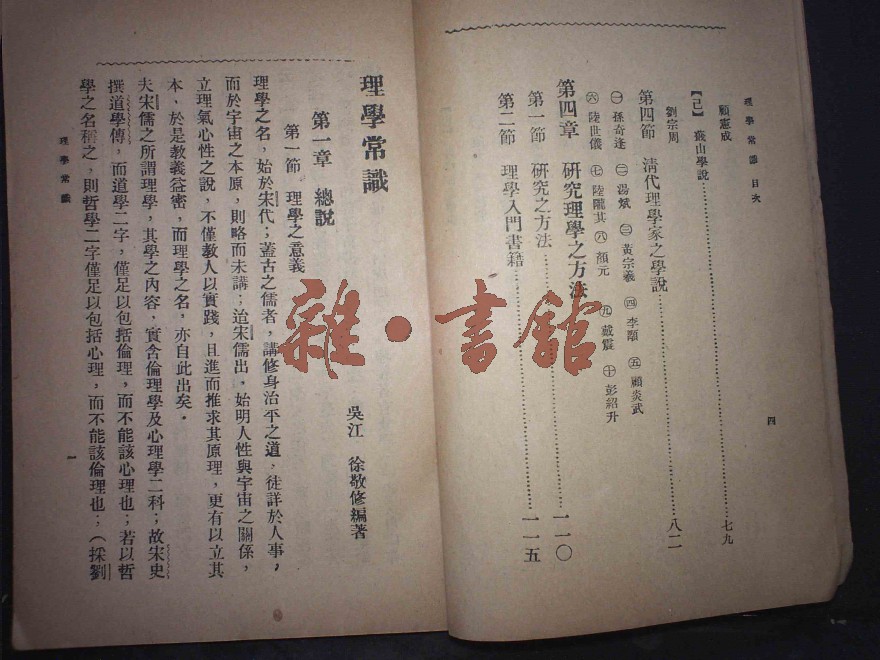 理學常識 目次
四
顧憲成
【己】 蕺山學說……七九
劉宗周
第四節 清代理學家之學說……八二
㊀孫奇逢 ㊁湯斌 ㊂黃宗羲 ㊃李顒 ㊄顧炎武
㊅陸世儀 ㊆陸隴其 ㊇顏元 ㊈戴震 ㊉彭紹升
第四章 研究理學之方法
第一節 研究之方法……一一〇
第二節 理學入門書籍……一一五
理學常識
吳江 徐敬修編著
第一章 總說
第一節 理學之意義
理學之名，始於宋代；蓋古之儒者，講修身治平之道，徒詳於人事，
而於宇宙之本原，則略而未講；迨宋儒出，始明人性與宇宙之關係，
立理氣心性之說，不僅教人以實踐，且進而推求其原理，更有以立其
本，於是教義益密，而理學之名，亦自此出矣。
夫宋儒之所謂理學，其學之內容，實含倫理學及心理學二科；故宋史
撰道學傳，而道學二字，僅足以包括倫理，而不能該心理也；若以哲
學之名稱之，則哲學二字僅足以包括心理，而不能該倫理也；（採劉
理學常識
一
雜·書館